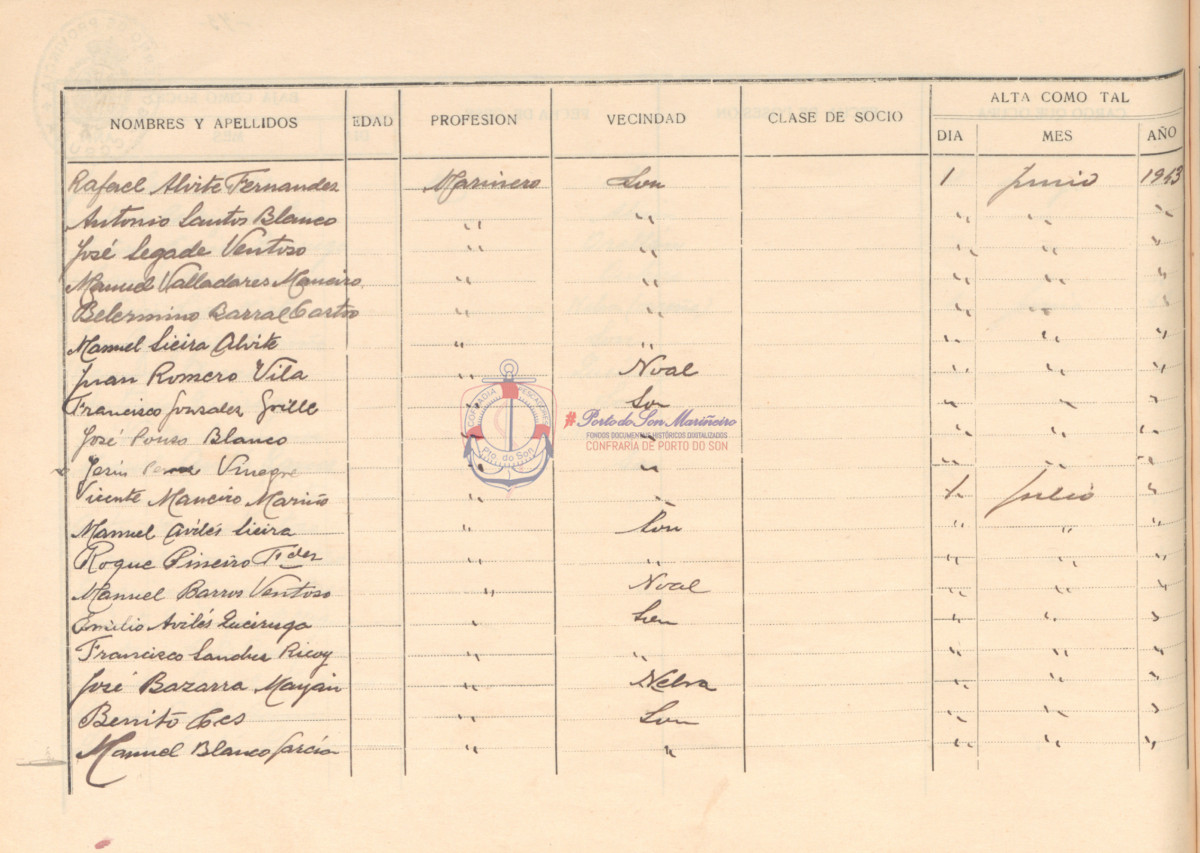 ALTA COMO TAL
NOMBRES Y APELLIDOS EDAD PROFESION VECINDAD CLASE DE SOCIO DIA MES AÑO
Rafael Alvite Fernandez Marinero Son 1 Junio 1943
Antonio Santos Blanco " " " " "
José Legade Ventoso " " " " "
Manuel Valladares Maneiro " " " " "
Belermino Barral Castro " " " " "
Manuel Sieira Alvite " " " " "
Juan Romero Vila " Noal " " "
Francisco Gonzalez Grille " Son " " "
José Pouso Blanco " " " " "
Vinagre " " " "
Vicente Maneiro Mariño " " 1 Julio "
Manuel Avilés Sieira " Son " " "
Roque Pineiro Fdez " " " " "
Manuel Barros Ventoso " Noal " " "
Emilio Avilés " Son " " "
Francisco Sandez Ricoy " " " " "
José Bazarra Mayán " Nebra " " "
Benito Ces " Son " " "
Manuel Blanco García " " " " "
COFRADIA PESCADORES
Pto. do Son
#Porto do Son Mariñeiro
FONDOS DOCUMENTAIS HISTÓRICOS DIXITALIZADOS
CONFRARÍA DE PORTO DO SON